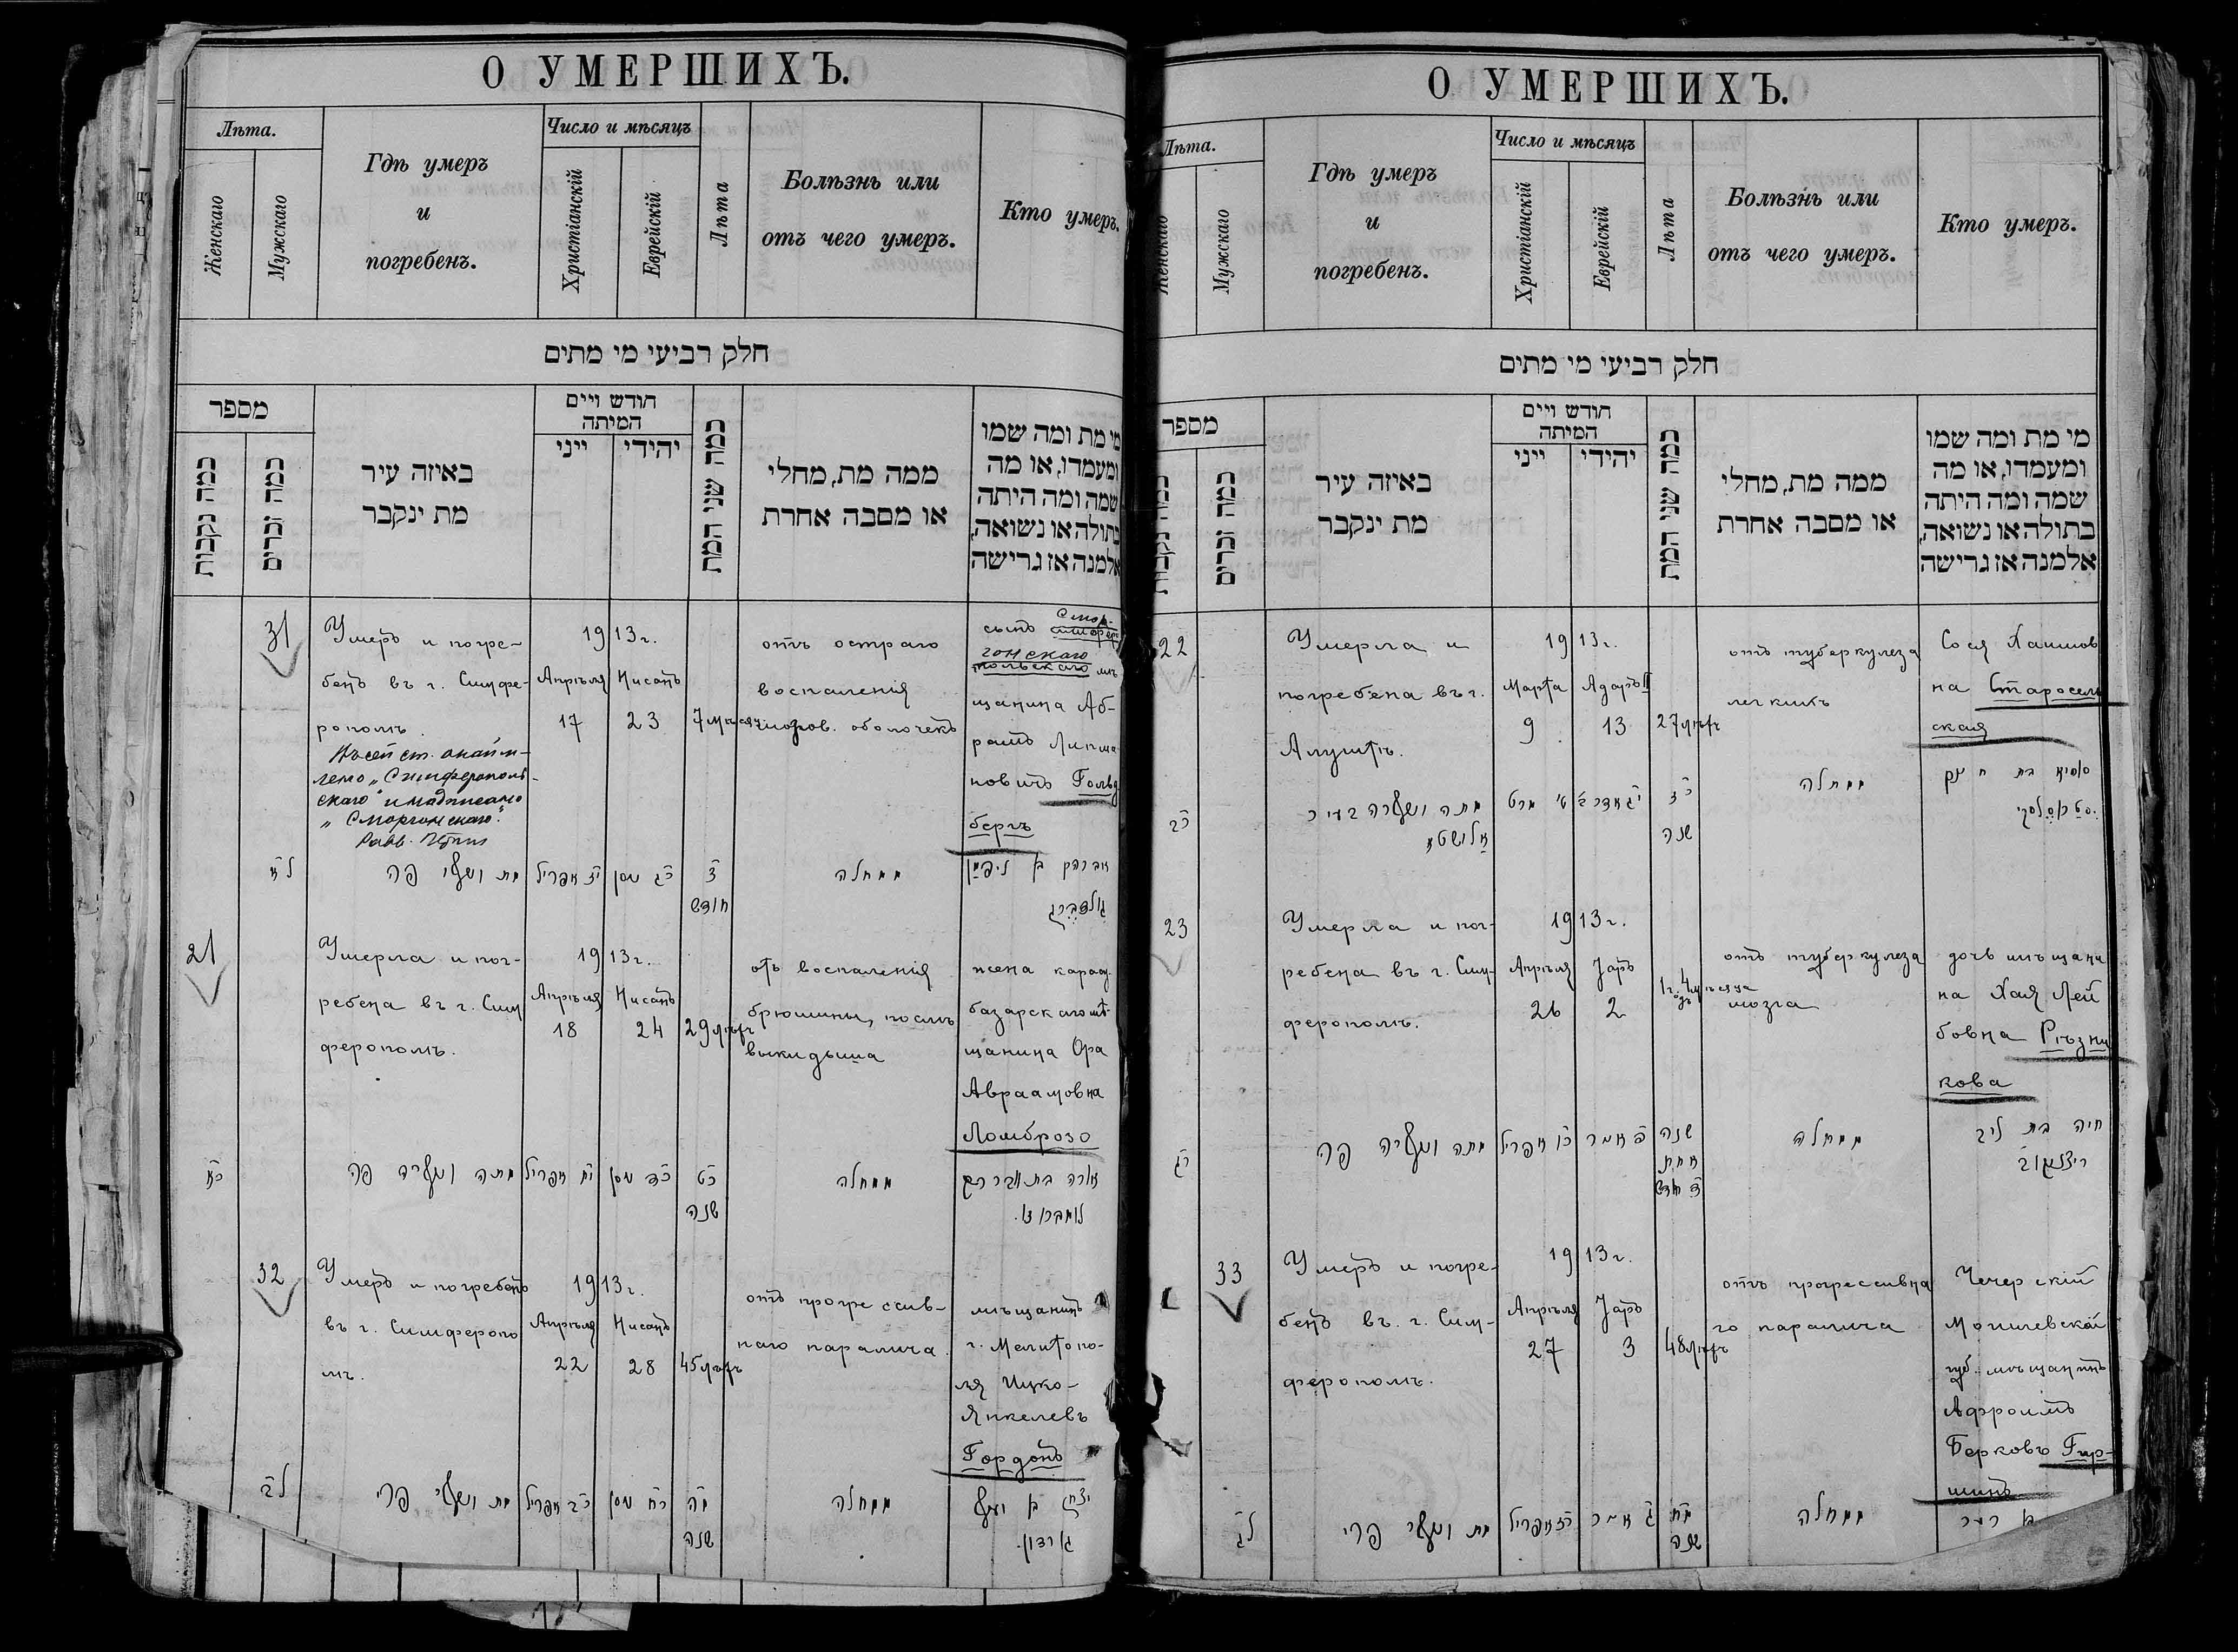 О УМЕРШИХЪ.
Лѣта.
Женскаго
Мужскаго
Гдѣ умеръ
и
погребенъ.
Число и мѣсяцъ
Христіанскій
Еврейскій
Лѣта
Болѣзнь или
отъ чего умеръ.
Кто умеръ.
חלק רביעי מי מתים
מספר
כמה נקבות
כמה זכרים
באיזה עיר
מת ינקבר
חודש ויים
המיתה
ייני
יהידי
כמה שני המת
ממה מת, מחלי
או מסבה אחרת
מי מת ומה שמו
ומעמדו, או מה
שמה ומה היתה
בתולה או נשואה,
אלמנה אז גרישה
31
Умеръ и погре-
бенъ въ г. Симфе-
рополѣ.
"Симферополь-
скаго" и надписано
"Сморгонскаго".
Равв.
1913г.
Апрѣля Нисанъ
17 23
7 мѣсяц
отъ остраго
воспаленія
мозгов. оболочекъ
Смор-
сынъ симферо
гонскаго
польскаго мѣ
щанина Аб-
рамъ Липма
новичъ Гольд
бергъ
לא
מת ונקבר פה
יז אפריל
כג ניסן
ז
חודש
ממחלה
אברהם בן ליפמן
גולדברג
21
Умерла и пог-
ребена въ г. Сим
ферополѣ.
1913г.
Апрѣля Нисанъ
18 24
29 лѣтъ
отъ воспаленія
брюшины, послѣ
выкидыша
жена карасу-
базарскаго мѣ-
щанина Ора
Авраамовна
Ломброзо
כא
מתה ונקברה פה
יח אפריל
כד ניסן
כט
שנה
ממחלה
אורה בת אברהם
לומברוזו.
32
Умеръ и погребенъ
въ г. Симферопо
лѣ.
1913г.
Апрѣля Нисанъ
22 28
45 лѣтъ
отъ прогрессив-
наго паралича.
мѣщанинъ
г. Мелитопо-
ля Ицко-
Янкелевъ
Гордонъ
לב
מת ונקבר פה
כב אפריל
כח ניסן
מה
שנה
ממחלה
יצחק בן יעקב
גארדון.
О УМЕРШИХЪ.
Лѣта.
Женскаго
Мужскаго
Гдѣ умеръ
и
погребенъ.
Число и мѣсяцъ
Христіанскій
Еврейскій
Лѣта
Болѣзнь или
отъ чего умеръ.
Кто умеръ.
חלק רביעי מי מתים
מספר
כמה נקבות
כמה זכרים
באיזה עיר
מת ינקבר
חודש ויים
המיתה
ייני
יהידי
כמה שני המת
ממה מת, מחלי
או מסבה אחרת
מי מת ומה שמו
ומעמדו, או מה
שמה ומה היתה
בתולה או נשואה,
אלמנה אז גרישה
22
Умерла и
погребена въ г.
Алуштѣ.
1913г.
Марта Адаръ II
9 13
27 лѣтъ
отъ туберкулеза
легкихъ
Сося Хаимов
на Старосель
ская
כב
מתה ונקברה בעיר
אלושטא
ט מרט
יג אדר ב
כז
שנה
ממחלה
סאסיא בת חיים
23
Умерла и пог-
ребена въ г. Сим-
ферополѣ.
1913г.
Апрѣля Іаръ
26 2
1 г. 4 мѣсяца
отъ туберкулеза
мозга
дочь мѣщани
на Хая Лей
бовна Рѣзни
кова
כג
מתה ונקברה פה
כו אפריל
ב אייר
שנה
אחת
ד חודש
ממחלה
חיה בת ליב
רעזניקוב
33
Умеръ и погре-
бенъ въ. г. Сим-
ферополѣ.
1913г.
Апрѣля Іаръ
27 3
48 лѣтъ
отъ прогрессивна
го паралича
Чечерскій
Могилевской
губ. мѣщанинъ
Афроимъ
Берковъ Гир-
шинъ
לג
מת ונקבר פה
כז אפריל
ג אייר
מח
שנה
ממחלה